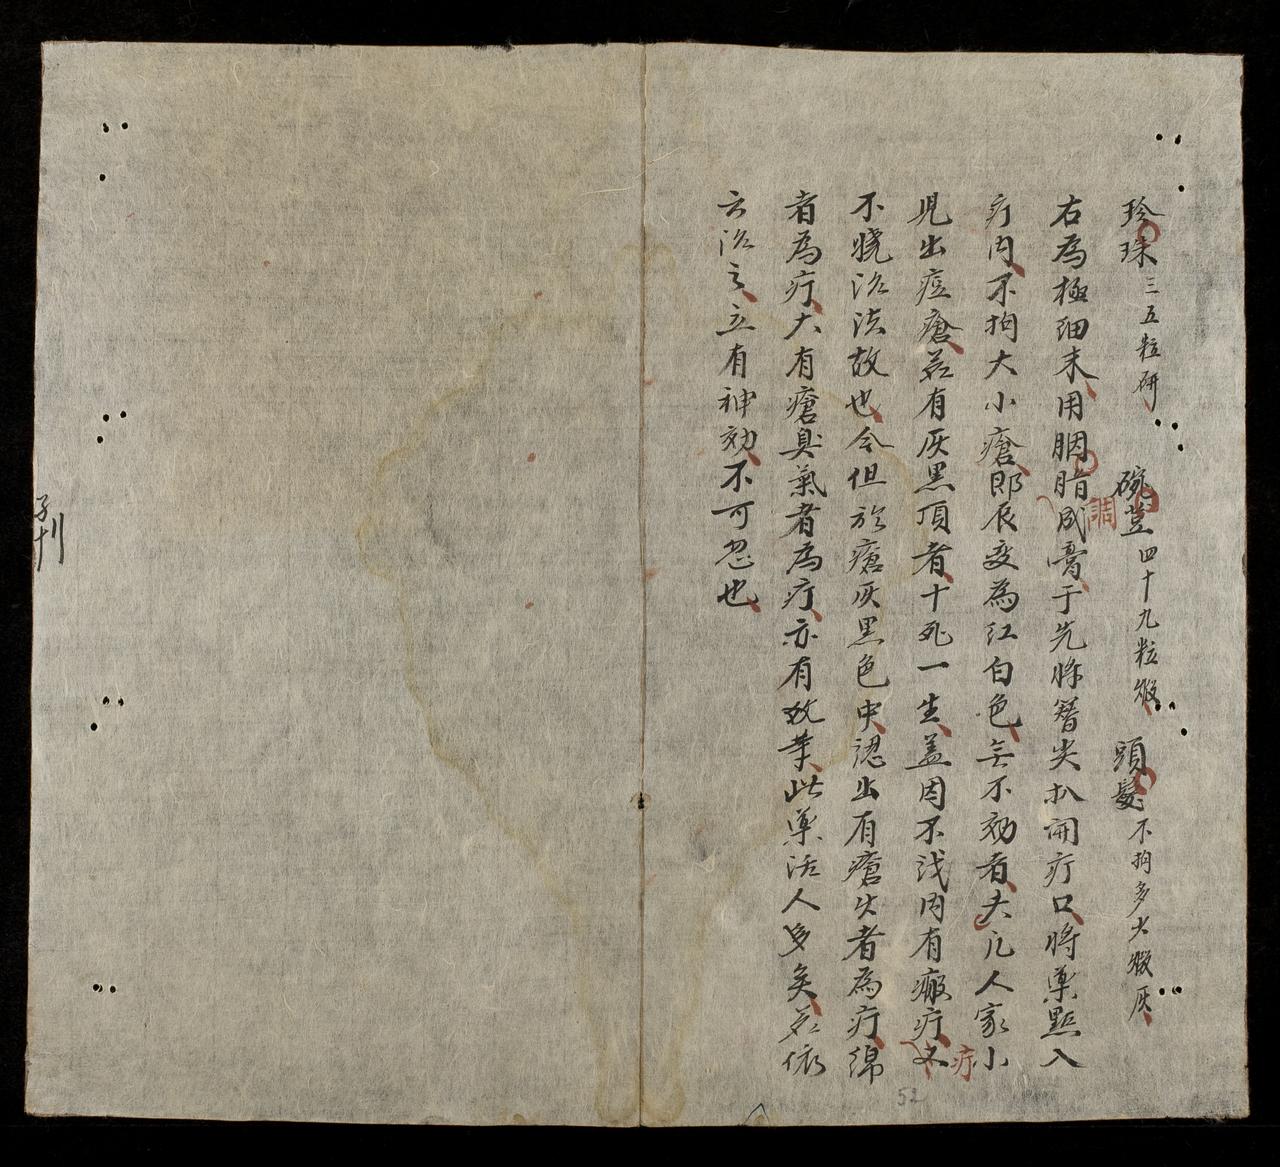 珍珠三五粒研 碗荳四十九粒煅 頭髮不拘多大煅灰
右為極細末用胭脂調成膏于先將簪尖扒開疔口將藥點入
疔內不拘大小瘡即辰变為红白色無不効者夫凡人家小
児出痘瘡若有灰黑頂者十死一生盖因不浅內有瘢疔又疔
不曉治法故也今但於瘡灰黑色中認出有瘡火者為疔綿
者為疔大有瘡臭氣者為疔亦有效葉此藥活人多矣若依
云治之立有神効不可忽也
52